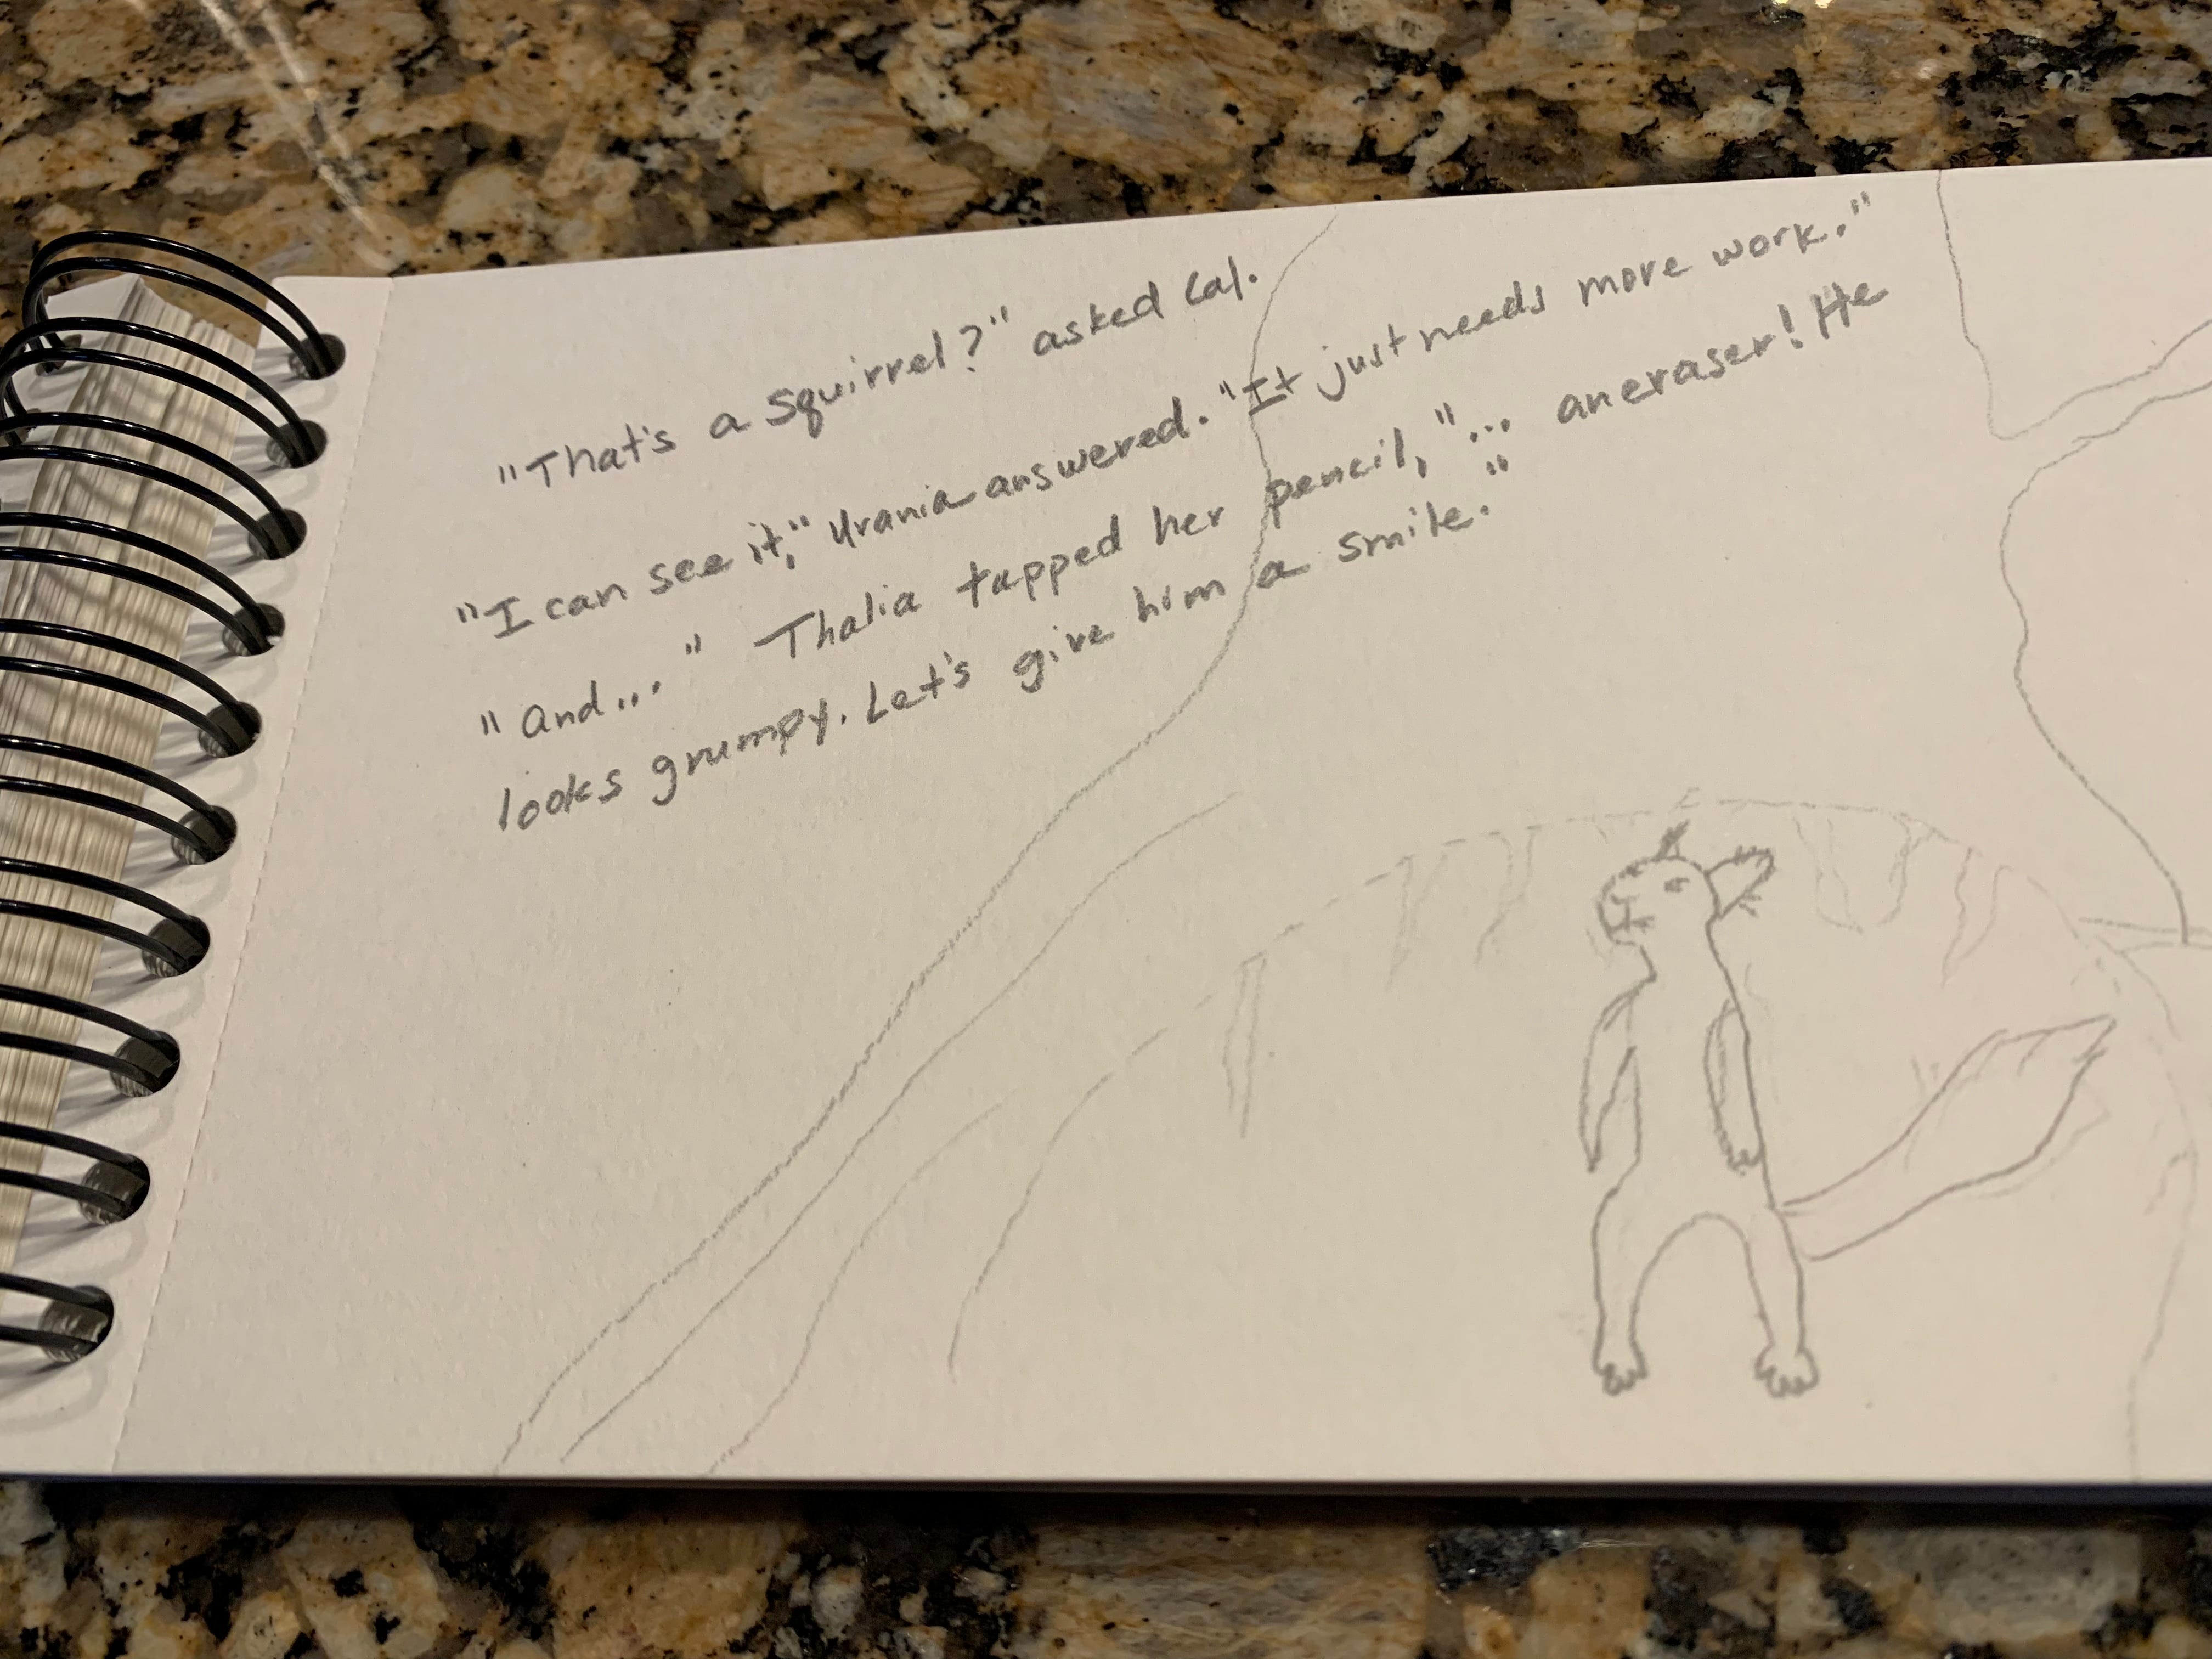 "That's a squirrel?" asked Cal.
"I can see it," Urania answered. "It just needs more work."
"And..." Thalia tapped her pencil, "... an eraser! He
looks grumpy. Let's give him a smile."